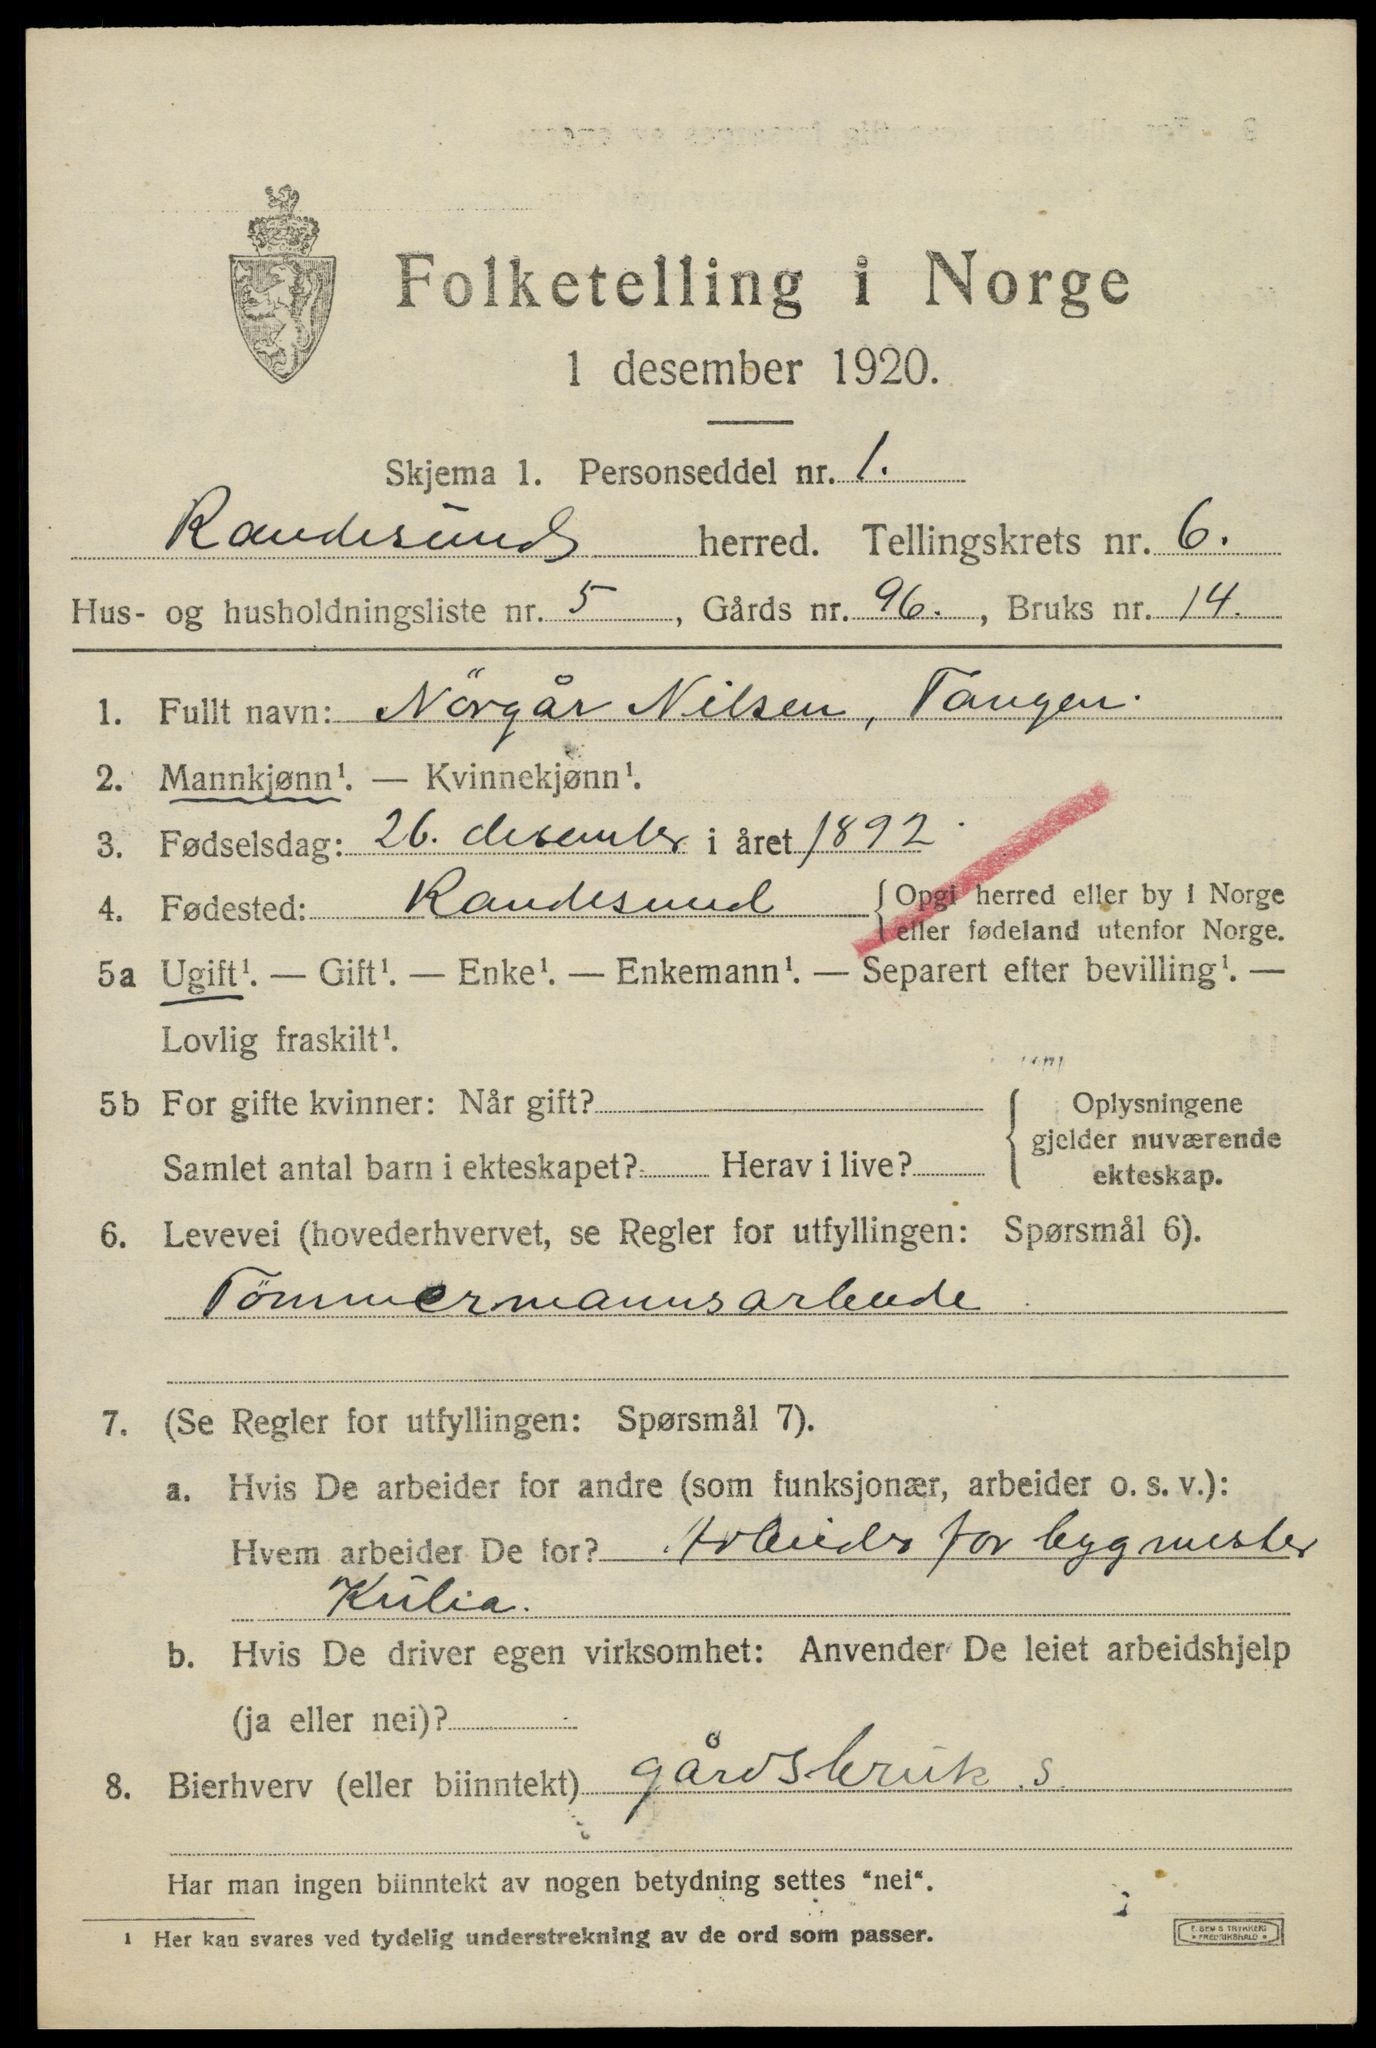 Folketelling i Norge
1 desember 1920.
Skjema 1. Personseddel nr. 1.
Randesund herred. Tellingskrets nr. 6.
Hus- og husholdningsliste nr. 5, Gårds nr. 96., Bruks nr. 14.
1. Fullt navn: Nörgår Nilsen, Tangen.
2. Mannkjønn¹. — Kvinnekjønn¹.
3. Fødselsdag: 26. desember i året 1892.
4. Fødested: Randesund {Opgi herred eller by i Norge
eller fødeland utenfor Norge.
5a Ugift¹. — Gift¹. — Enke¹. — Enkemann¹. — Separert efter bevilling¹. —
Lovlig fraskilt¹.
5b For gifte kvinner: Når gift? { Oplysningene
gjelder nuværende
Samlet antal barn i ekteskapet? Herav i live?
ekteskap.
6. Levevei (hovederhvervet, se Regler for utfyllingen: Spørsmål 6).
Tömmermannsarbeide
7. (Se Regler for utfyllingen: Spørsmål 7).
a. Hvis De arbeider for andre (som funksjonær, arbeider o. s. v.):
Hvem arbeider De for? Arbeider for bygmester
Kulia.
b. Hvis De driver egen virksomhet: Anvender De leiet arbeidshjelp
(ja eller nei)?
8. Bierhverv (eller biinntekt) gårdsbruk s.
Har man ingen biinntekt av nogen betydning settes "nei".
1 Her kan svares ved tydelig understrekning av de ord som passer.
E. SEM S TRYKKERI
FREDRIKSHALD